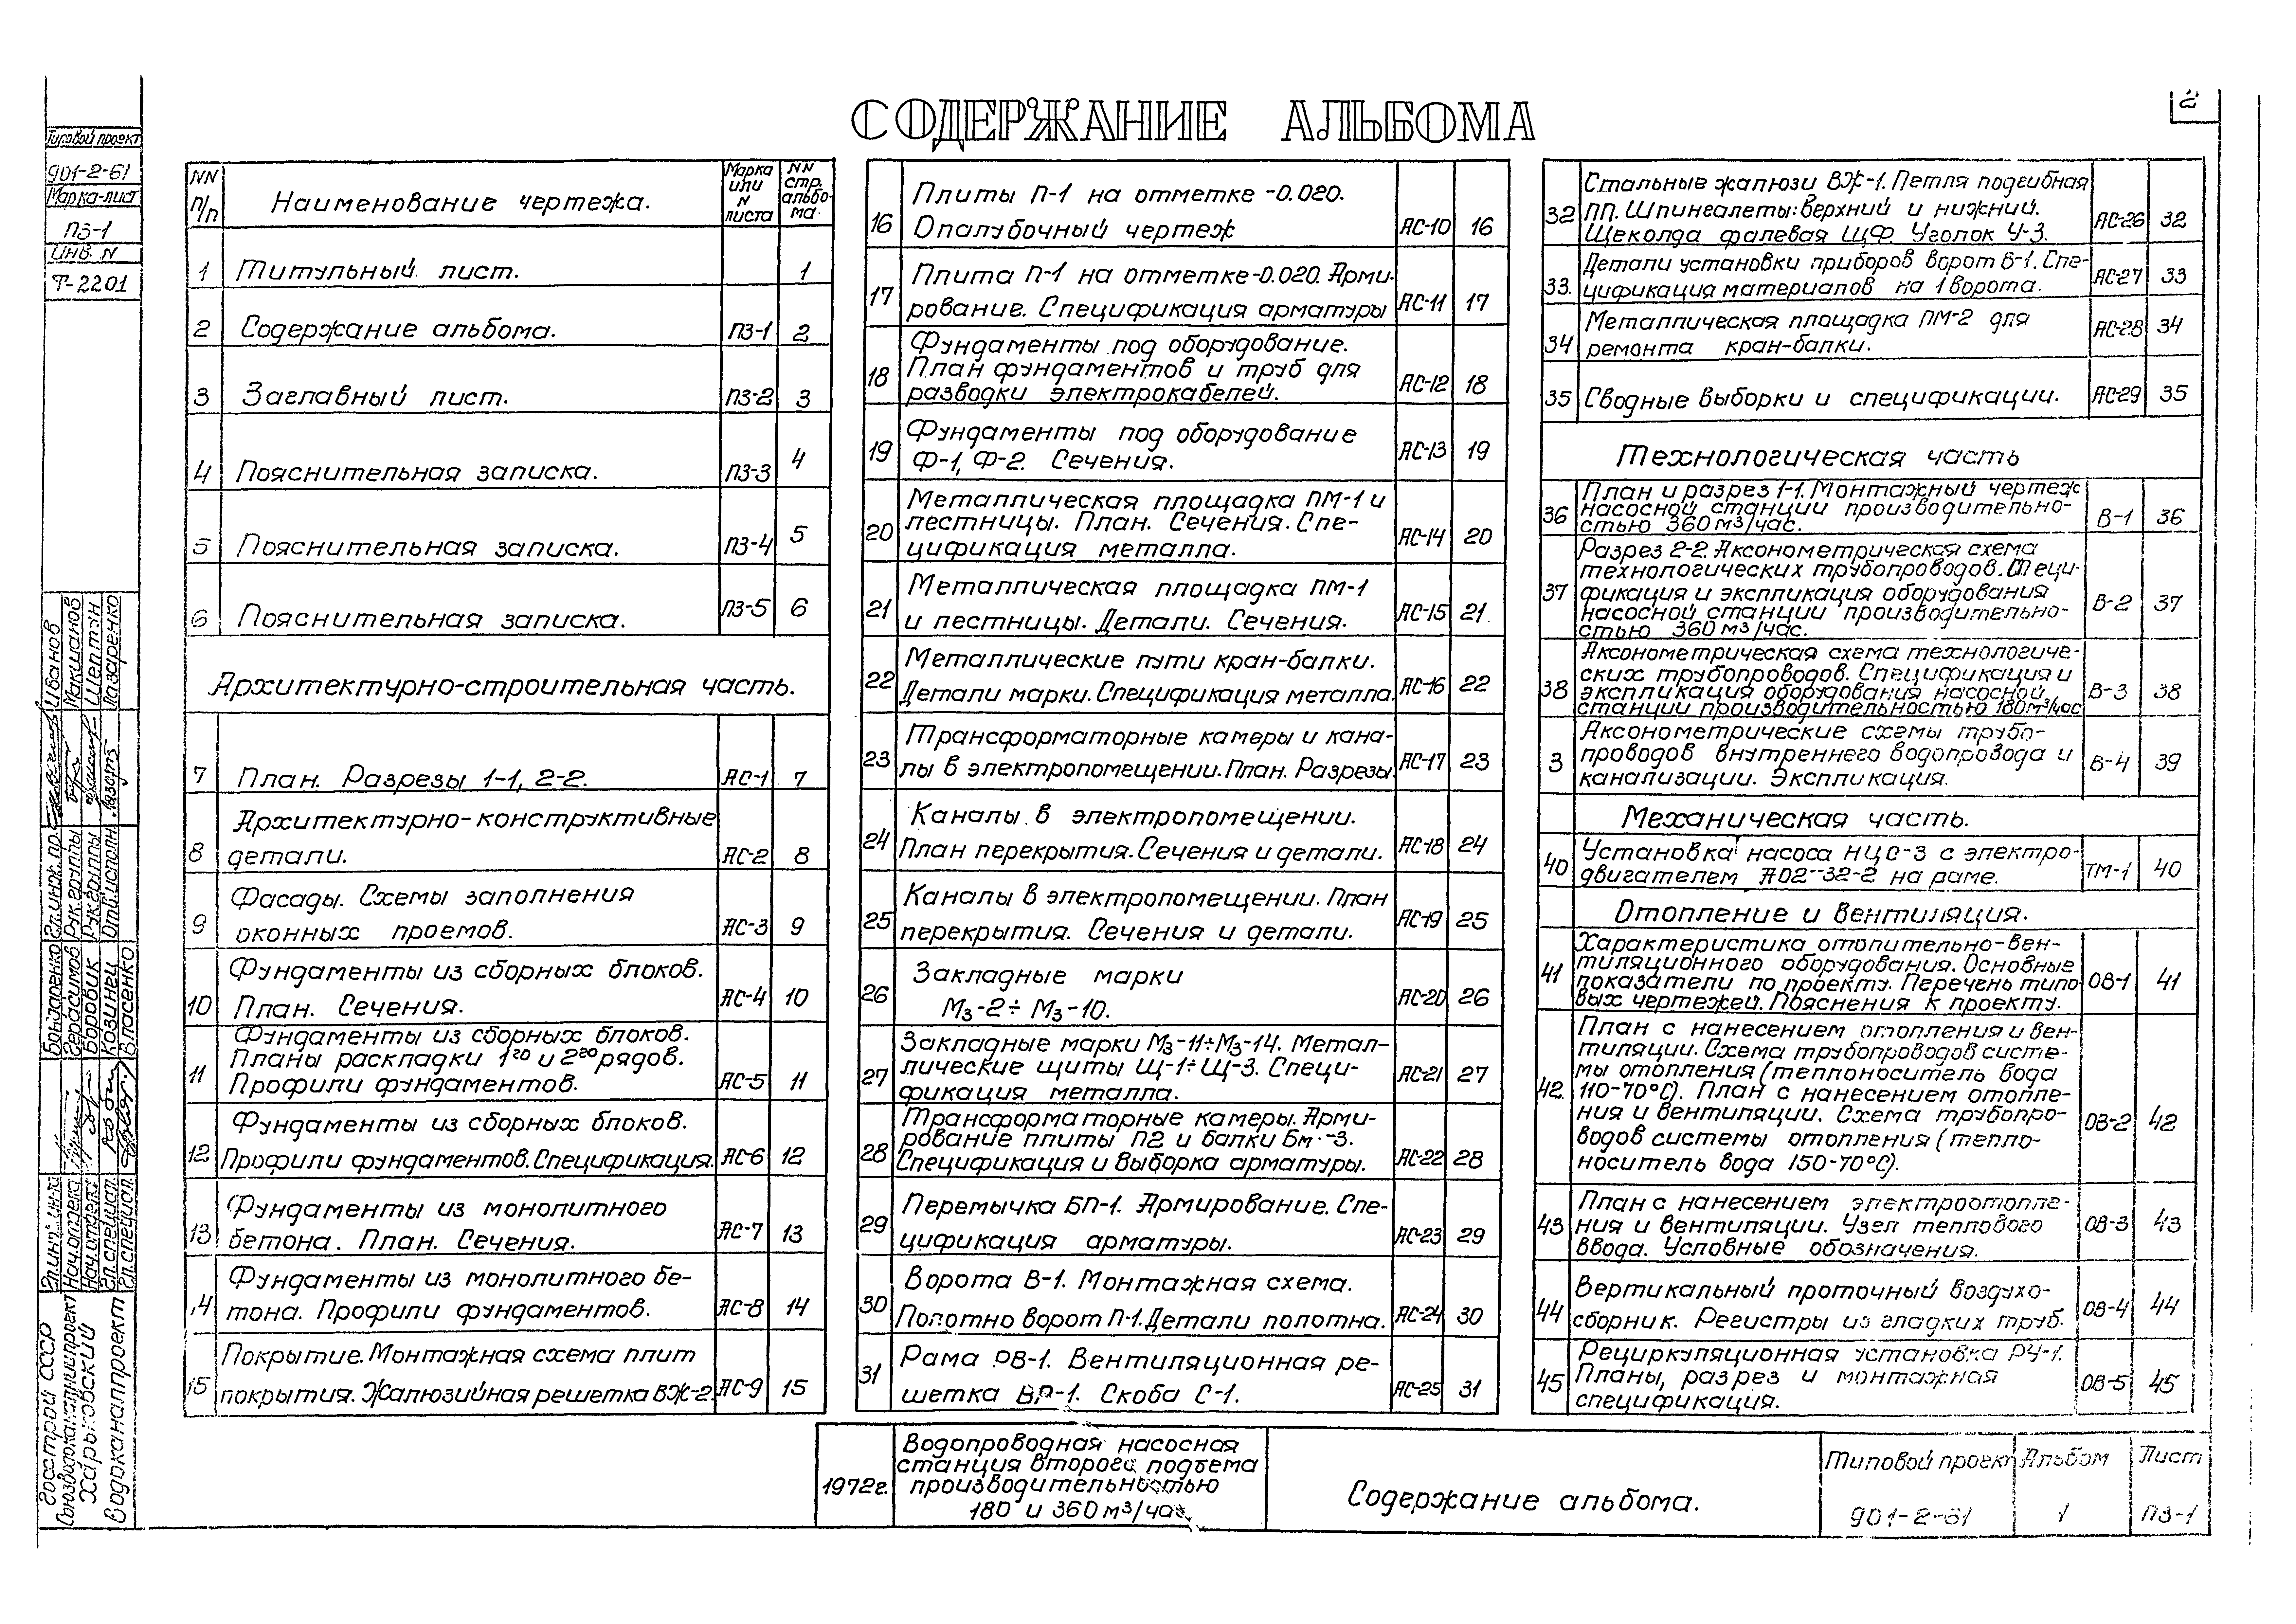 СОДЕРЖАНИЕ АЛЬБОМА
2
Типовой проект
901-2-61
Марка-лист
ПЗ-1
Инв. N
Т-2201
NN п/п
Наименование чертежа.
Марка или N листа
NN стр. альбо-ма.
1 Титульный лист. 1
2 Содержание альбома. ПЗ-1 2
3 Заглавный лист. ПЗ-2 3
4 Пояснительная записка. ПЗ-3 4
5 Пояснительная записка. ПЗ-4 5
6 Пояснительная записка. ПЗ-5 6
Архитектурно-строительная часть.
7 План. Разрезы 1-1, 2-2. АС-1 7
Архитектурно-конструктивные
8 детали. АС-2 8
Фасады. Схемы заполнения
9 оконных проемов. АС-3 9
Фундаменты из сборных блоков.
10 План. Сечения. АС-4 10
Фундаменты из сборных блоков.
Планы раскладки 1го и 2го рядов.
11 Профили фундаментов. АС-5 11
Фундаменты из сборных блоков.
12 Профили фундаментов. Спецификация. АС-6 12
Фундаменты из монолитного
13 бетона. План. Сечения. АС-7 13
Фундаменты из монолитного бе-
14 тона. Профили фундаментов. АС-8 14
Покрытие. Монтажная схема плит
15 покрытия. Жалюзийная решетка ВЖ-2. АС-9 15
Плиты П-1 на отметке -0.020.
16 Опалубочный чертеж АС-10 16
Плита П-1 на отметке -0.020. Арми-
17 рование. Спецификация арматуры АС-11 17
Фундаменты под оборудование.
План фундаментов и труб для
18 разводки электрокабелей. АС-12 18
Фундаменты под оборудование
19 Ф-1, Ф-2. Сечения. АС-13 19
Металлическая площадка ПМ-1 и
лестницы. План. Сечения. Спе-
20 цификация металла. АС-14 20
Металлическая площадка ПМ-1
21 и лестницы. Детали. Сечения. АС-15 21
Металлические пути кран-балки.
22 Детали марки. Спецификация металла. АС-16 22
Трансформаторные камеры и кана-
23 лы в электропомещении. План. Разрезы. АС-17 23
Каналы в электропомещении.
24 План перекрытия. Сечения и детали. АС-18 24
Каналы в электропомещении. План
25 перекрытия. Сечения и детали. АС-19 25
Закладные марки
26 Мз-2÷Мз-10. АС-20 26
Закладные марки Мз-11÷Мз-14. Метал-
лические щиты Щ-1÷Щ-3. Специ-
27 фикация металла. АС-21 27
Трансформаторные камеры. Арми-
рование плиты П2 и балки Бм-3.
28 Спецификация и выборка арматуры. АС-22 28
Перемычка БП-1. Армирование. Спе-
29 цификация арматуры. АС-23 29
Ворота В-1. Монтажная схема.
30 Полотно ворот П-1. Детали полотна. АС-24 30
Рама РВ-1. Вентиляционная ре-
31 шетка ВР-1. Скоба С-1. АС-25 31
Стальные жалюзи ВЖ-1. Петля подгибная
32 ПП. Шпингалеты: верхний и нижний.
Щеколда фалевая ЩФ. Уголок У-3. АС-26 32
Детали установки приборов ворот В-1. Спе-
33. цификация материалов на 1 ворота. АС-27 33
Металлическая площадка ПМ-2 для
34 ремонта кран-балки. АС-28 34
35 Сводные выборки и спецификации. АС-29 35
Технологическая часть
План и разрез 1-1. Монтажный чертеж
36 насосной станции производительно-
стью 360 м3/час. В-1 36
Разрез 2-2. Аксонометрическая схема
технологических трубопроводов. Специ-
37 фикация и экспликация оборудования
насосной станции производительно-
стью 360 м3/час. В-2 37
Аксонометрическая схема технологиче-
ских трубопроводов. Спецификация и
38 экспликация оборудования насосной
станции производительностью 180 м3/час В-3 38
Аксонометрические схемы трубо-
3 проводов внутреннего водопровода и
канализации. Экспликация. В-4 39
Механическая часть.
Установка насоса НЦС-3 с электро-
40 двигателем АО2-32-2 на раме. ТМ-1 40
Отопление и вентиляция.
Характеристика отопительно-вен-
тиляционного оборудования. Основные
41 показатели по проекту. Перечень типо
вых чертежей. Пояснения к проекту. ОВ-1 41
План с нанесением отопления и вен-
тиляции. Схема трубопроводов систе-
мы отопления (теплоноситель вода
42. 110-70°С). План с нанесением отопле-
ния и вентиляции. Схема трубопро-
водов системы отопления (тепло-
носитель вода 150-70°С). ОВ-2 42
План с нанесением электроотопле-
43 ния и вентиляции. Узел теплового
ввода. Условные обозначения. ОВ-3 43
Вертикальный проточный воздухо-
44 сборник. Регистры из гладких труб. ОВ-4 44
Рециркуляционная установка РУ-1.
45 Планы, разрез и монтажная
спецификация. ОВ-5 45
Госстрой СССР
Союзводоканалниипроект
Харьковский
Водоканалпроект
Гл.инж. ин-та
Нач.отдела
Нач.отдела
Гл.специал.
Гл.специал.
Бондаренко
Герасимов
Боровик
Козинец
Власенко
Гл.инж.пр.
Рук.группы
Рук.группы
Отв.исполн.
Иванов
Макшанов
Шептун
Лазаренко
1972г.
Водопроводная насосная
станция второго подъема
производительностью
180 и 360 м3/час
Содержание альбома.
Типовой проект
901-2-61
Альбом
1
Лист
ПЗ-1